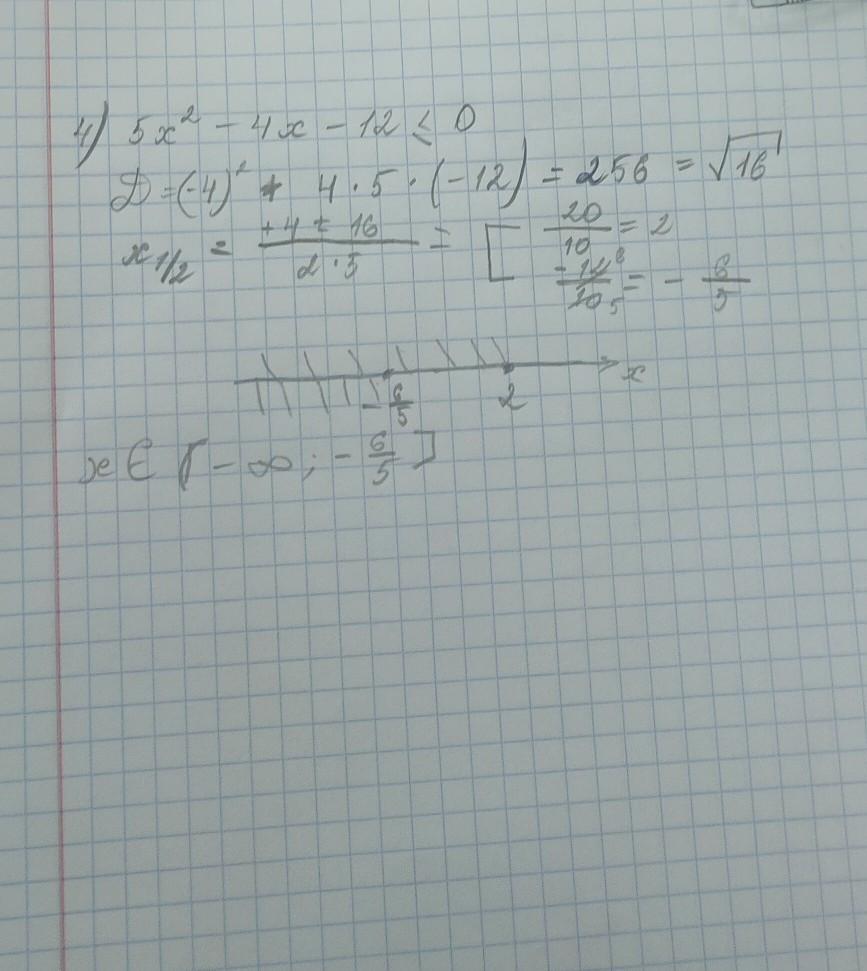 4) 5x² - 4x - 12 ≤ 0
D = (-4)² + 4 · 5 · (-12) = 256 = √16
x 1/2 = +4 ± 16 / 2 · 5 = [ 20/10 = 2
-12/10 = - 6/5
- 6/5 2 x
x ∈ [ - ∞ ; - 6/5 ]